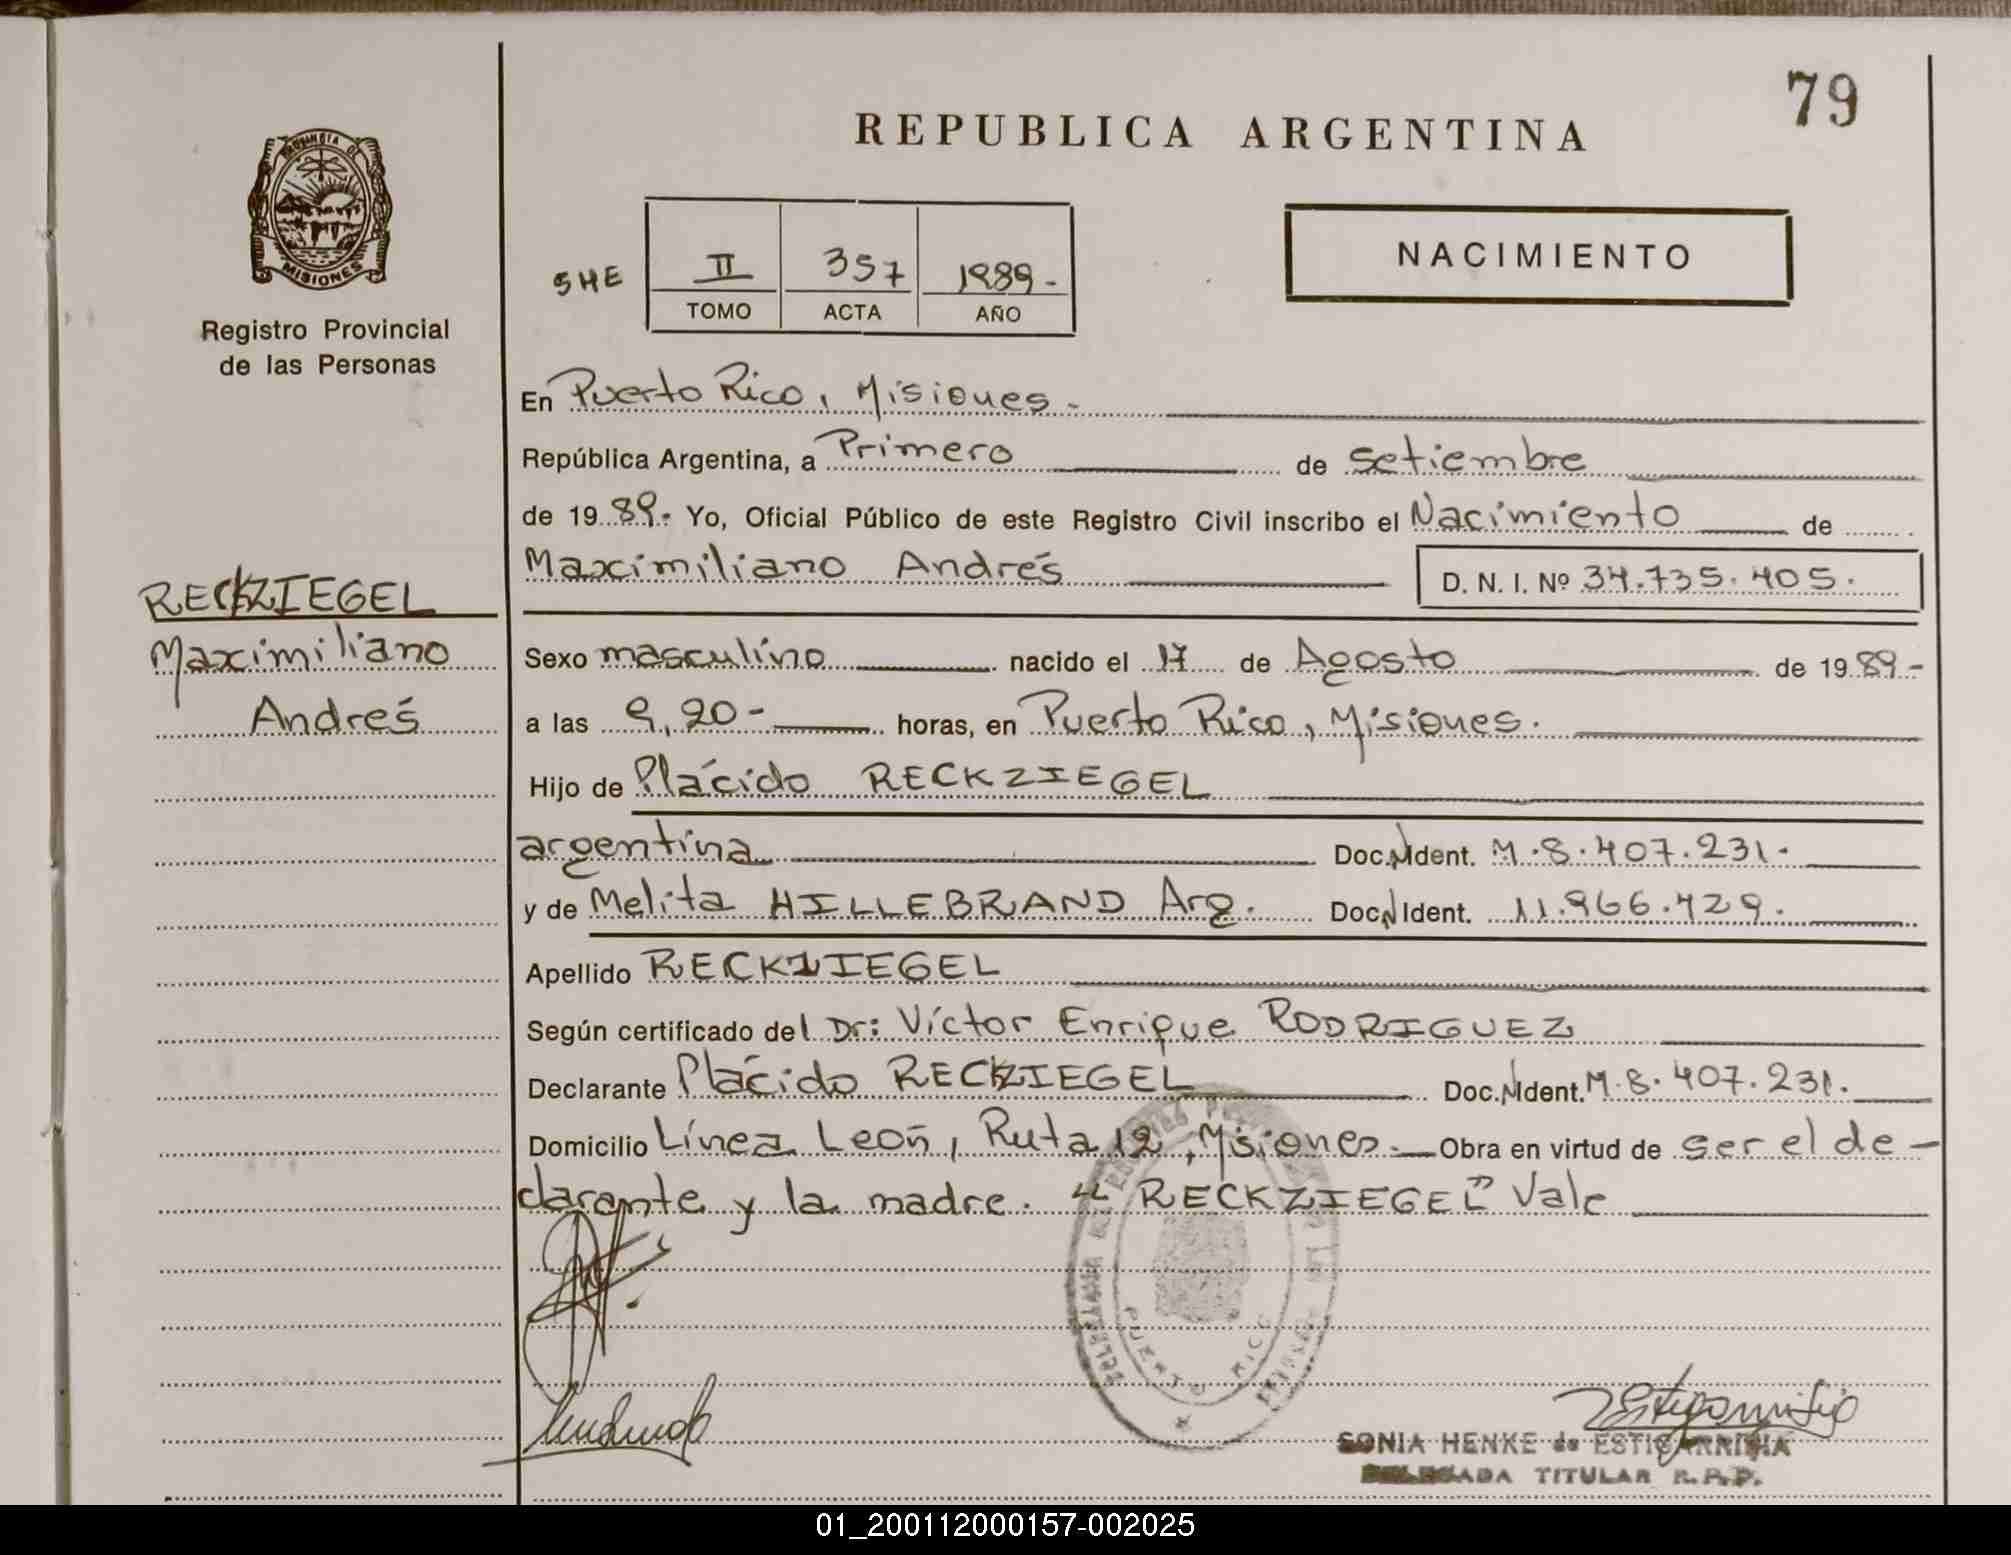 79
REPUBLICA ARGENTINA
PROVINCIA DE
MISIONES
Registro Provincial
de las Personas
SHE
II 357 1989-
TOMO ACTA AÑO
NACIMIENTO
En Puerto Rico, Misiones.-
República Argentina, a Primero de setiembre
de 1989.- Yo, Oficial Público de este Registro Civil inscribo el Nacimiento de
Maximiliano Andrés
D. N. I. Nº 34.735.405.
RECKZIEGEL
Maximiliano
Andrés
Sexo masculino nacido el 17 de Agosto de 1989-
a las 9,20- horas, en Puerto Rico, Misiones.
Hijo de Plácido RECKZIEGEL
argentina Doc.NIdent. M.8.407.231.
y de Melita HILLEBRAND Arg. Doc.NIdent. 11.966.429.
Apellido RECKZIEGEL
Según certificado del Dr: Víctor Enrique RODRIGUEZ
Declarante Plácido RECKZIEGEL Doc.NIdent. M.8.407.231.
Domicilio Línea León, Ruta 12, Misiones.- Obra en virtud de ser el de-
clarante y la madre. "RECKZIEGEL" Vale
PUERTO RICO
SONIA HENKE de ESTIGARRIBIA
DELEGADA TITULAR R.P.P.
01_200112000157-002025